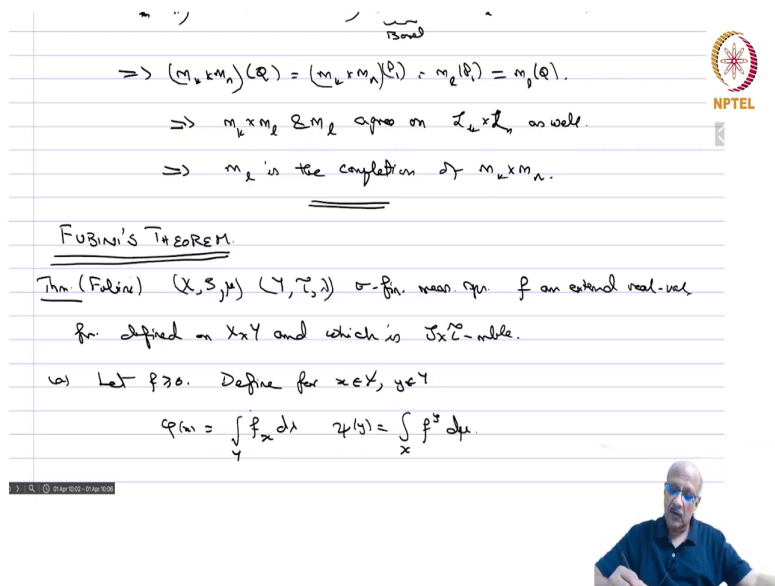 Borel
=> (m_k × m_n)(Q) = (m_k × m_n)(P_1) = m_l(P_1) = m_l(Q).
=> m_k × m_l & m_l agree on L_k × L_n as well.
=> m_l is the completion of m_k × m_n.
NPTEL
FUBINI'S THEOREM.
Thm. (Fubini) (X, S, μ) (Y, τ, λ) σ-fin. meas. sps. f an extend real-val.
fn. defined on X×Y and which is S×τ-mble.
(a) Let f≥0. Define for x∈X, y∈Y
φ(x) = ∫_Y f_x dλ ψ(y) = ∫_X f^y dμ.
01 Apr 10:02 - 01 Apr 10:06